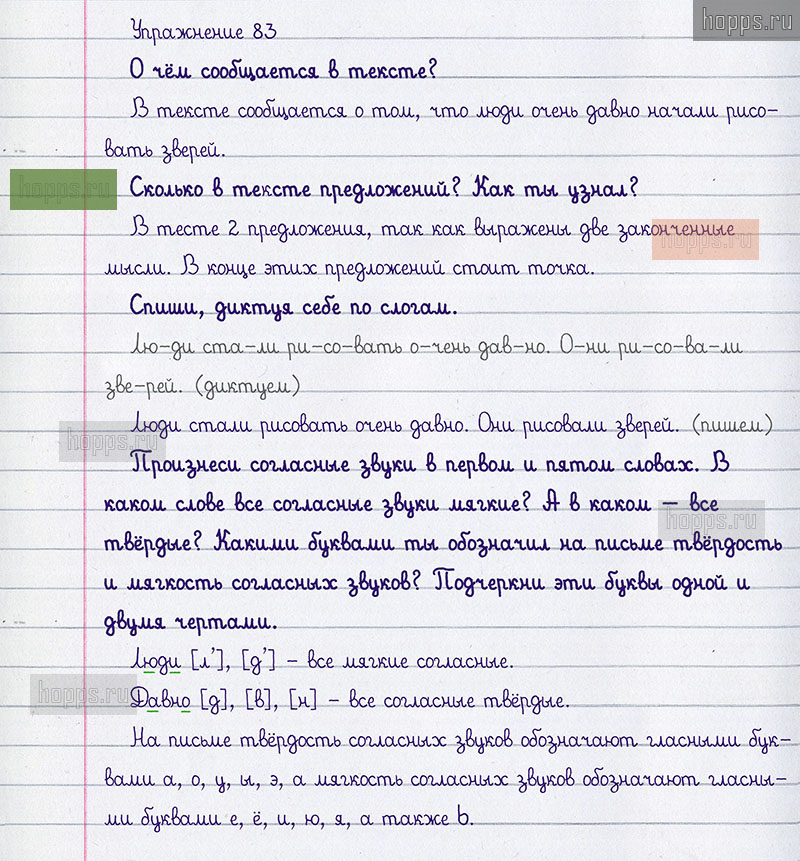 hopps.ru
Упражнение 83
О чём сообщается в тексте?
В тексте сообщается о том, что люди очень давно начали рисо-
вать зверей.
hopps.ru
Сколько в тексте предложений? Как ты узнал?
В тесте 2 предложения, так как выражены две законченные
hopps.ru
мысли. В конце этих предложений стоит точка.
Спиши, диктуя себе по слогам.
Лю-ди ста-ли ри-со-вать о-чень дав-но. О-ни ри-со-ва-ли
зве-рей. (диктуем)
Люди стали рисовать очень давно. Они рисовали зверей. (пишем)
hopps.ru
Произнеси согласные звуки в первом и пятом словах. В
каком слове все согласные звуки мягкие? А в каком – все
hopps.ru
твёрдые? Какими буквами ты обозначил на письме твёрдость
и мягкость согласных звуков? Подчеркни эти буквы одной и
двумя чертами.
Люди [л’], [д’] – все мягкие согласные.
hopps.ru
Давно [д], [в], [н] – все согласные твёрдые.
На письме твёрдость согласных звуков обозначают гласными бук-
вами а, о, у, ы, э, а мягкость согласных звуков обозначают гласны-
ми буквами е, ё, и, ю, я, а также ь.